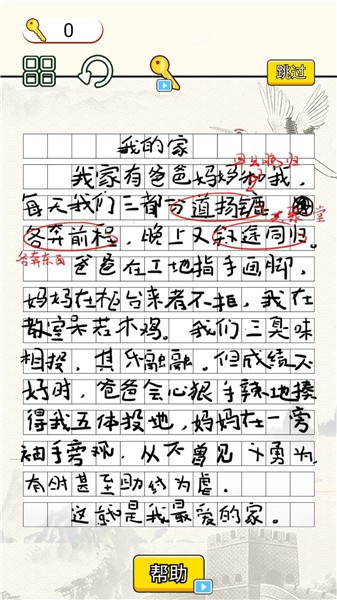 0
跳过
我的家
早出晚归
我家有爸爸妈妈和我，
每天我们三都分道扬镳
各奔前程，晚上又殊途同归。
各奔东西
爸爸在工地指手画脚，
妈妈在柜台来者不拒，我在
教室呆若木鸡。我们三臭味
相投，其乐融融。但成绩不
好时，爸爸会心狠手辣地揍
得我五体投地，妈妈在一旁
袖手旁观，从不曾见 勇为，
有时甚至助纣为虐。
这就是我最爱的家。
帮助